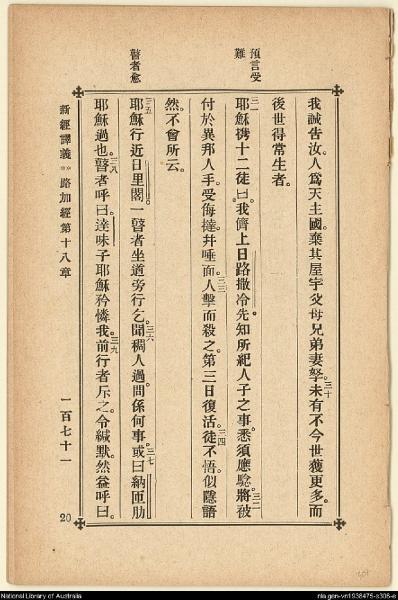 預言受
難
瞽者愈
我誠告汝。人爲天主國。棄其屋宇父母兄弟妻孥。三十未有不今世獲更多。而
後世得常生者。
三一耶穌携十二徒曰。我儕上日路撒冷。先知所紀人子之事。悉須應驗。三二將被
付於異邦人手。受侮撻。幷唾面。三三人擊而殺之。第三日復活。三四徒不悟。似隱語
然。不曾所云。
三五耶穌行近日里閣。一瞽者坐道旁行乞。三六聞稠人過。問係何事。三七或曰納匝肋
耶穌過也。三八瞽者呼曰。達味子耶穌矜憐我。三九前行者斥之。令緘默。然益呼曰。
新經譯義 路加經第十八章
一百七十一
20
National Library of Australia
nla.gen-vn1938475-s306-e